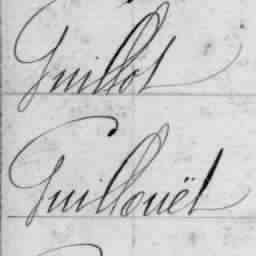 Guillot
Guillouët